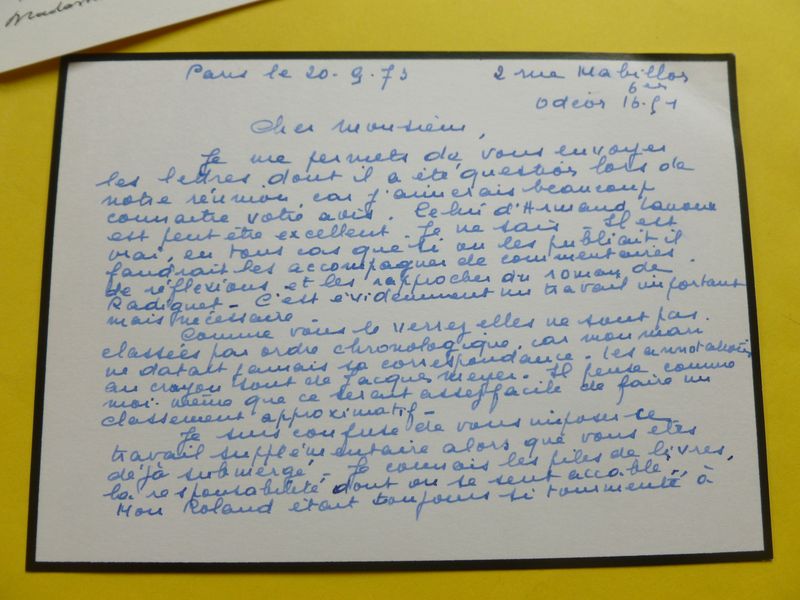 Madame
Paris le 20.9.73
2 rue Mabillon
6em
Odéon 16.51
Cher Monsieur,
Je me permets de vous envoyer
les lettres dont il a été question lors de
notre réunion, car j'aimerais beaucoup
connaitre votre avis. Celui d'Armand Lanoux
est peut être excellent. Je ne sais - Il est
vrai, en tous cas que si on les publiait il
faudrait les accompagner de commentaires.
de réflexions, et les rapprocher du roman de
Radiguet - C'est évidemment un travail important
mais nécessaire -
Comme vous le verrez elles ne sont pas
classées par ordre chronologique, car mon mari
ne datait jamais sa correspondance. Les annotations
au crayon sont de Jacques Meyer. Il pense comme
moi-même que ce serait assez facile de faire un
classement approximatif -
Je suis confuse de vous imposer ce
travail supplémentaire alors que vous êtes
déjà submergé - Je connais les piles de livres,
la responsabilité dont on se sent accablé -
Mon Roland était toujours si tourmenté à